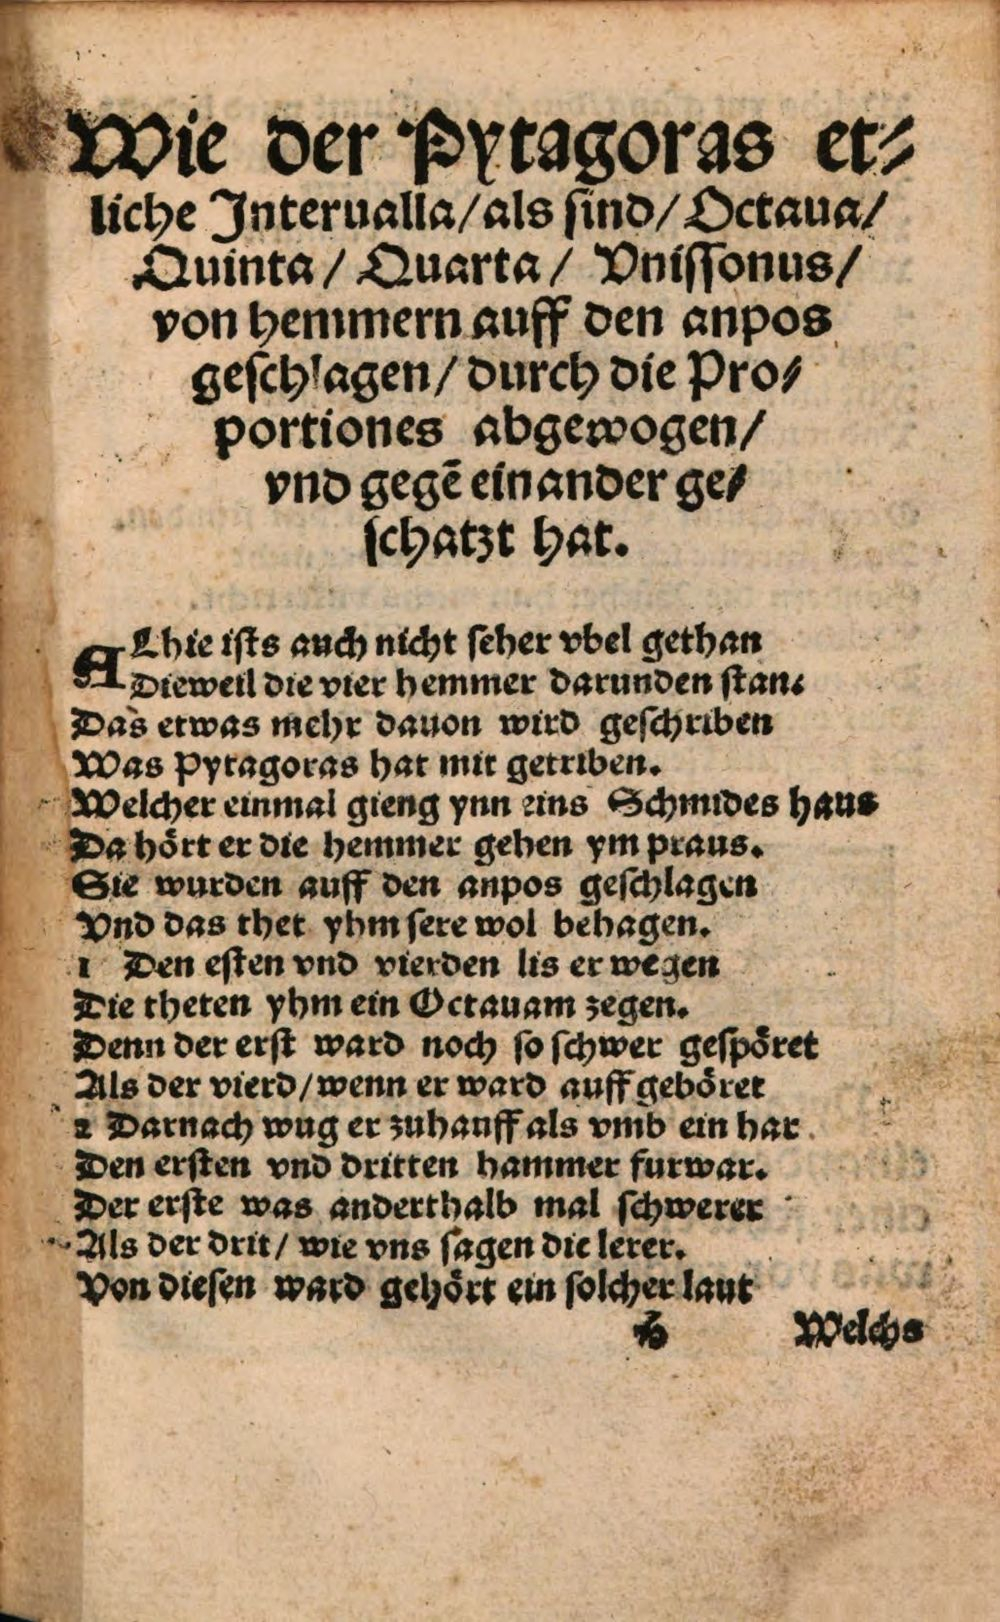 Wie der Pytagoras et⸗
liche Interualla/als sind/Octaua/
Quinta / Quarta / Vnissonus/
von hemmern auff den anpos
geschlagen/ durch die Pro⸗
portiones abgewogen/
vnd gegē einander ge⸗
schatzt hat.
ALhie ists auch nicht seher vbel gethan
Dieweil die vier hemmer darunden stan.
Das etwas mehr dauon wird geschriben
Was Pytagoras hat mit getriben.
Welcher einmal gieng ynn eins Schmides haus
Da hört er die hemmer gehen ym praus.
Sie wurden auff den anpos geschlagen
Vnd das thet yhm sere wol behagen.
1 Den esten vnd vierden lis er wegen
Die theten yhm ein Octauam zegen.
Denn der erst ward noch so schwer gespöret
Als der vierd/wenn er ward auffgehöret
2 Darnach wug er zuhauff als vmb ein har
Den ersten vnd dritten hammer furwar.
Der erste was anderthalb mal schwerer
Als der drit/ wie vns sagen die lerer.
Von diesen ward gehört ein solcher laut
Welchs